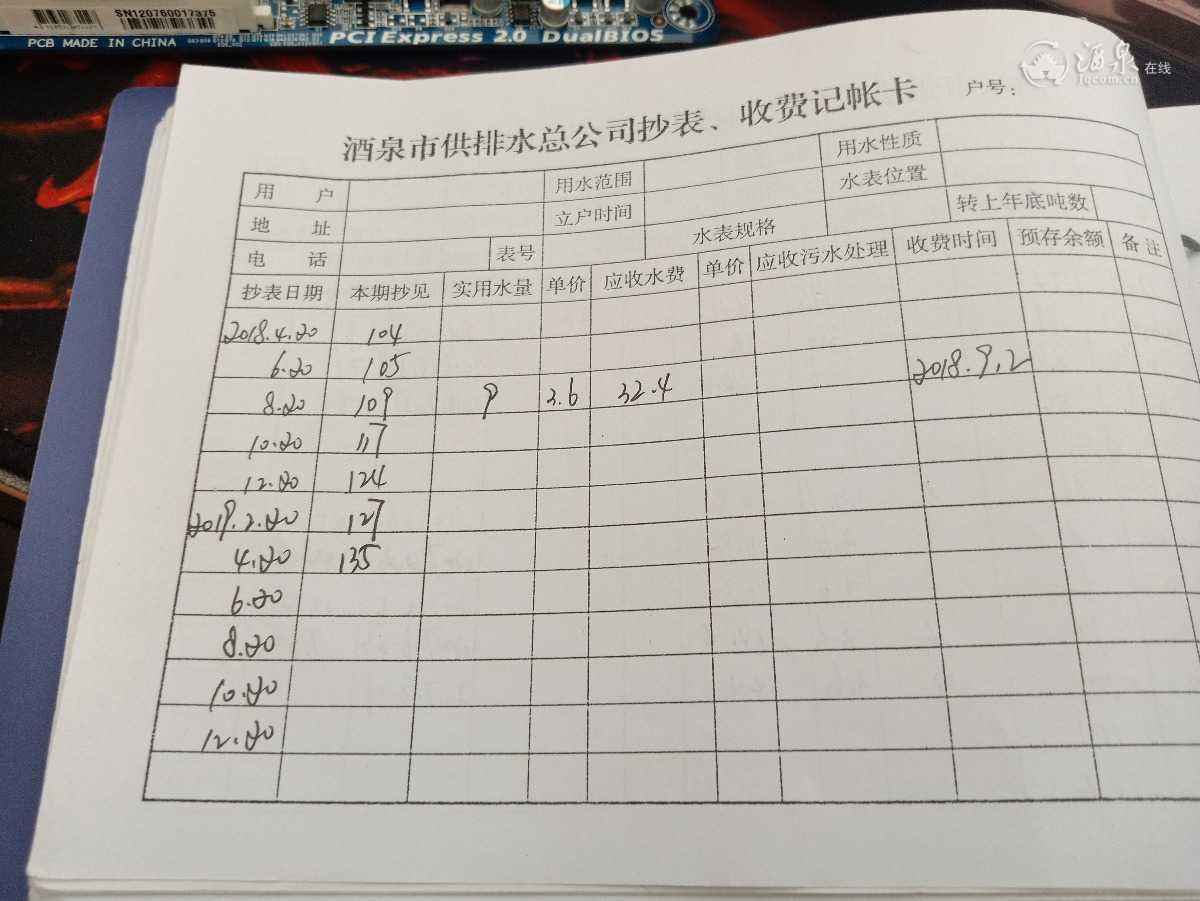 SN120760017375
PCB MADE IN CHINA
PCI Express 2.0 DualBIOS
酒泉在线
Jqcom.cn
酒泉市供排水总公司抄表、收费记帐卡 户号:
用户 用水范围 用水性质
地址 立户时间 水表位置
电话 表号 水表规格 转上年底吨数
抄表日期 本期抄见 实用水量 单价 应收水费 单价 应收污水处理 收费时间 预存余额 备注
2018.4.20 104
6.20 105
8.20 109 9 3.6 32.4 2018.9.2
10.20 117
12.20 124
2019.2.20 127
4.20 135
6.20
8.20
10.20
12.20